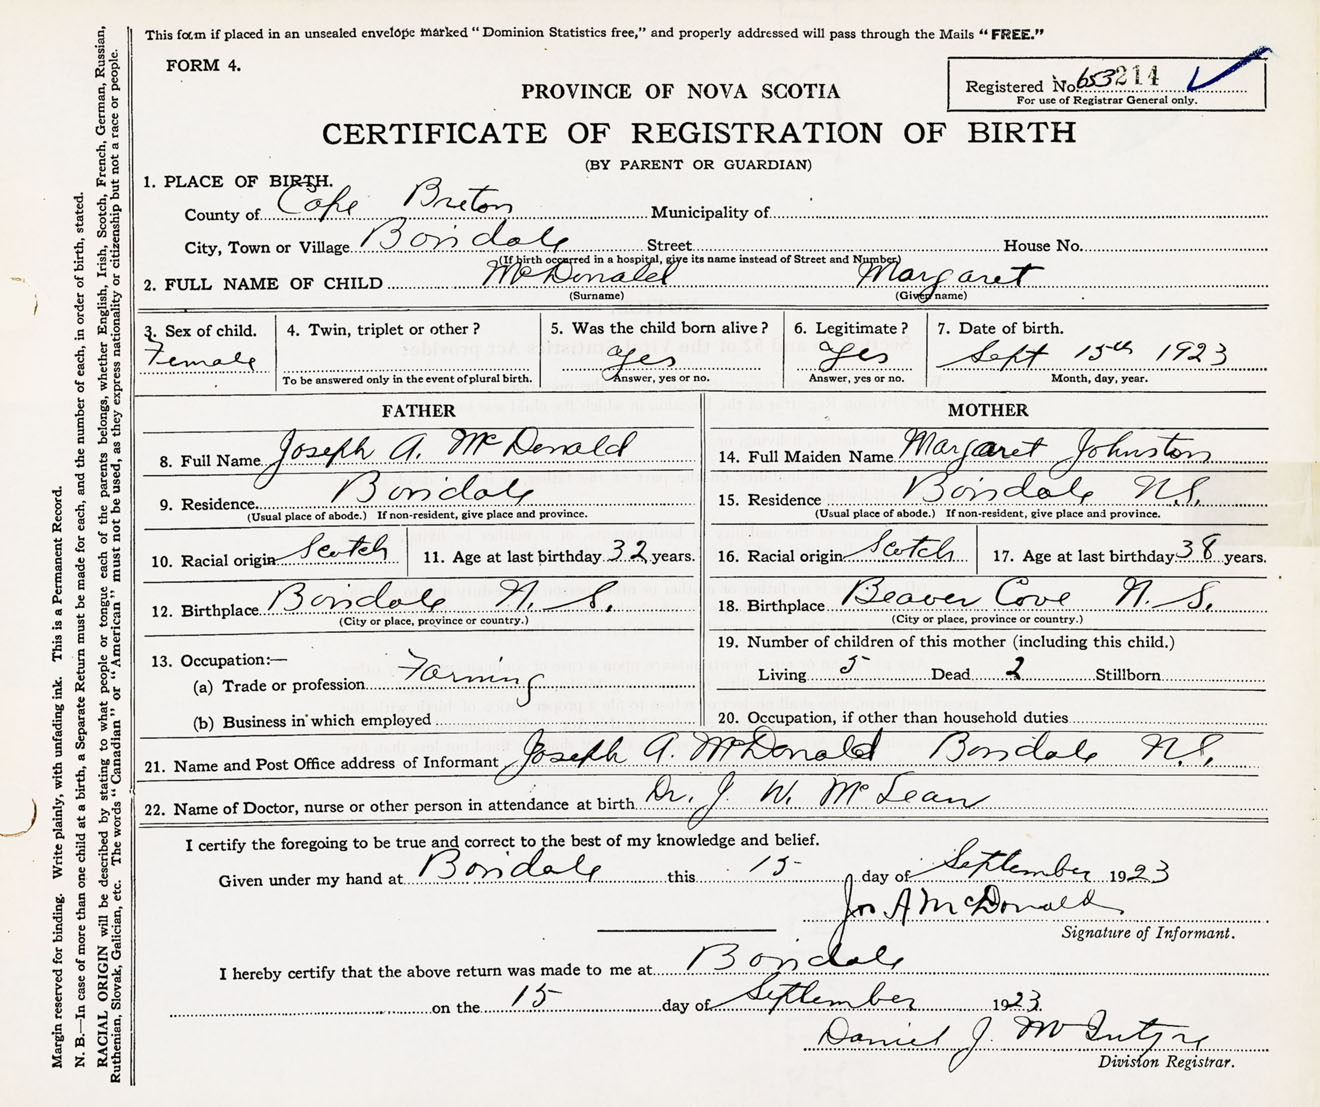 This form if placed in an unsealed envelope marked "Dominion Statistics free," and properly addressed will pass through the Mails "FREE."
FORM 4.
Registered No. 653214
For use of Registrar General only.
PROVINCE OF NOVA SCOTIA
CERTIFICATE OF REGISTRATION OF BIRTH
(BY PARENT OR GUARDIAN)
1. PLACE OF BIRTH.
County of Cape Breton Municipality of
City, Town or Village Boisdale Street House No.
(If birth occurred in a hospital, give its name instead of Street and Number)
2. FULL NAME OF CHILD McDonald Margaret
(Surname) (Given name)
3. Sex of child. 4. Twin, triplet or other? 5. Was the child born alive? 6. Legitimate? 7. Date of birth.
Female yes yes Sept 15th 1923
To be answered only in the event of plural birth. Answer, yes or no. Answer, yes or no. Month, day, year.
FATHER
8. Full Name Joseph A. McDonald
9. Residence Boisdale
(Usual place of abode.) If non-resident, give place and province.
10. Racial origin Scotch 11. Age at last birthday 32 years.
12. Birthplace Boisdale N. S.
(City or place, province or country.)
13. Occupation:—
(a) Trade or profession Farming
(b) Business in which employed
MOTHER
14. Full Maiden Name Margaret Johnston
15. Residence Boisdale N.S.
(Usual place of abode.) If non-resident, give place and province.
16. Racial origin Scotch 17. Age at last birthday 38 years.
18. Birthplace Beaver Cove N. S.
(City or place, province or country.)
19. Number of children of this mother (including this child.)
Living 5 Dead 2 Stillborn
20. Occupation, if other than household duties
21. Name and Post Office address of Informant Joseph A. McDonald Boisdale N.S.
22. Name of Doctor, nurse or other person in attendance at birth Dr. J. W. McLean
I certify the foregoing to be true and correct to the best of my knowledge and belief.
Given under my hand at Boisdale this 15 day of September 1923
Jos A McDonald
Signature of Informant.
I hereby certify that the above return was made to me at Boisdale
on the 15 day of September 1923.
Daniel J. McIntyre
Division Registrar.
Margin reserved for binding. Write plainly, with unfading ink. This is a Permanent Record.
N. B.—In case of more than one child at a birth, a Separate Return must be made for each, and the number of each, in order of birth, stated.
RACIAL ORIGIN will be described by stating to what people or tongue each of the parents belongs, whether English, Irish, Scotch, French, German, Russian,
Ruthenian, Slovak, Galician, etc. The words "Canadian" or "American" must not be used, as they express nationality or citizenship but not a race or people.